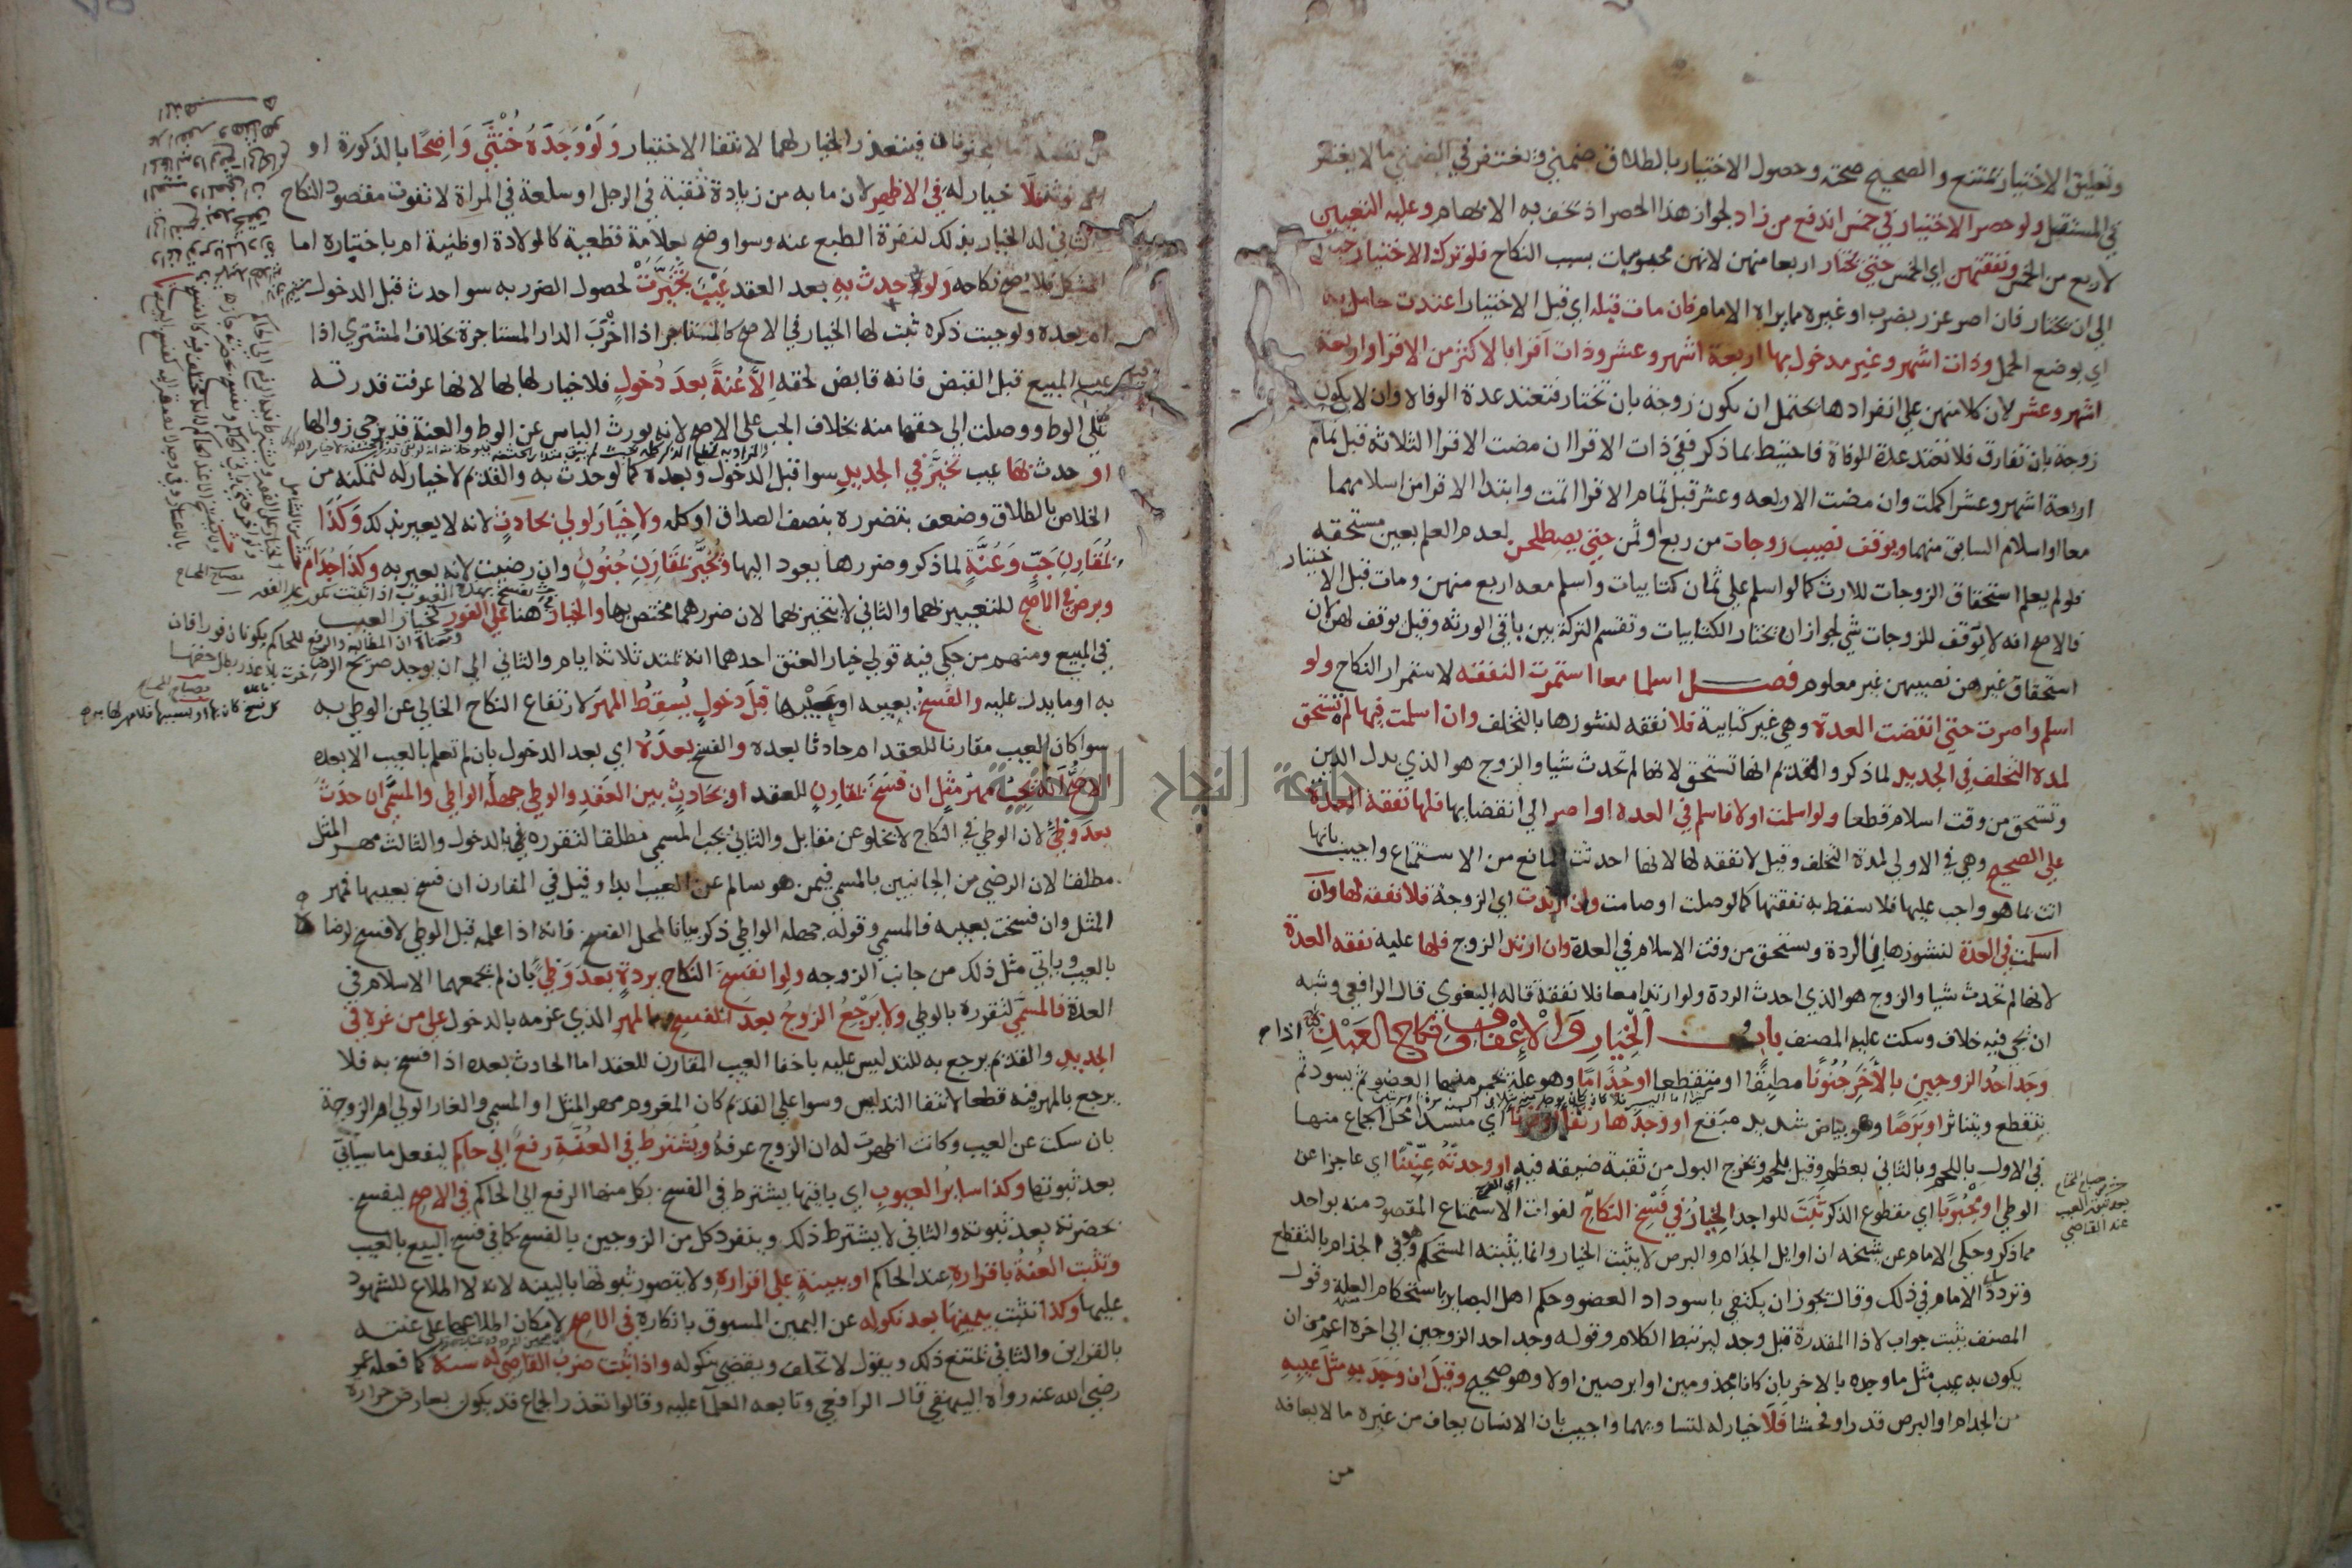 وتعليق الاختيار ممتنع والصحيح صحته وحصول الاختيار بالطلاق ضمني ويغتفر في الضمني ما لا يغتفر
في المستقل ولو حصر الاختيار في خمس اندفع من زاد لجواز هذا الحصر اذ يخف به الابهام وعليه التعيين
لاربع من الخمس ونفقتهن اي الخمس حتي يختار اربعا منهن لانهن محبوسات بسبب النكاح فلو ترك الاختيار حبس الي
الي ان يختار فان اصر عزر بضرب او غيره مما يراه الامام فان مات قبله اي قبل الاختيار اعتدت حامل به
اي بوضع الحمل وذات اشهر وغير مدخول بها اربعة اشهر وعشر وذات اقرا بالاكثر من الاقرا واربعة
اشهر وعشر لان كلا منهن علي انفرادها يحتمل ان يكون زوجة بان تختار فتعتد عدة الوفاة وان لا يكون
زوجة بان تفارق فلا تعتد عدة الوفاة فاحتيط بما ذكر ففي ذات الاقرا ان مضت الاقرا الثلاثة قبل تمام
اربعة اشهر وعشر اكملت وان مضت الاربعه وعشر قبل تمام الاقرا اتمت وابتدا الاقرا من اسلامهما
معا او اسلام السابق منهما ويوقف نصيب زوجات من ربع او ثمن حتي يصطلحن لعدم العلم بعين مستحقه
فلو لم يعلم استحقاق الزوجات للارث كما لو اسلم علي ثمان كتابيات واسلم معه اربع منهن ومات قبل الاختيار
فالاصح انه لا يوقف للزوجات شي لجواز ان يختار الكتابيات وتقسم التركة بين باقي الورثه وقيل يوقف لهن لان
استحقاق غيرهن نصيبهن غير معلوم فصل اسلما معا استمرت النفقته لاستمرار النكاح ولو
اسلم واصرت حتي انقضت العدة وهي غير كتابية فلا نفقه لنشوزها بالتخلف وان اسلمت فيها لم تستحق
لمدة التخلف في الجديد لما ذكر والقديم انها تستحق لانها لم تحدث شيا والزوج هو الذي بدل الدين
وتستحق من وقت اسلام قطعا ولو اسلمت اولا فاسلم في العدة او اصر الي انقضايها فلها نفقة العدة
علي الصحيح وهي في الاولي لمدة التخلف وقيل لا نفقه لها لانها احدثت المانع من الاستمتاع واجيب بانها
اتت بما هو واجب عليها فلا سقط به نفقتها كما لو صلت او صامت وان ارتدت اي الزوجة فلا نفقه لها وان
اسلمت في العدة لنشوزها في الردة وتستحق من وقت الاسلام في العدة وان ارتد الزوج فلها عليه نفقه العدة
لانها لم تحدث شيا والزوج هو الذي احدث الردة ولو ارتدا معا فلا نفقة قاله البغوي قال الرافعي ويشبه
ان يجي فيه خلاف وسكت عليه المصنف باب الخيار والاعفاف ونكاح العبد اذا
وجد احد الزوجين بالاخر جنونا مطبقا او متقطعا او جذاما وهو علة يحمر منها العضو ثم يسود ثم
يتقطع ويتناثر او برصا وهو بياض شديد مبقع او وجدها رتقا او قرنا اي منسدا محل الجماع منها
في الاول باللحم وبالثاني بعظم وقيل بلحم ويخرج البول من ثقبة ضيقه فيه او وجدته عنينا اي عاجزا عن
الوطي او مجبوبا اي مقطوع الذكر ثبت للواجد الخيار في فسخ النكاح لفوات الاستمتاع المقصود منه بواحد
مما ذكر وحكي الامام عن شيخه ان اوايل الجذام والبرص لا يثبت الخيار وانما يثبته المستحكم وهو في الجذام بالتقطع
وتردد الامام في ذلك وقال يجوز ان يكتفي باسوداد العضو وحكم اهل البصاير باستحكام العلة وقول
المصنف يثبت جواب لاذا المقدرة قبل وجد ليرتبط الكلام وقوله وجد احد الزوجين الي اخره اعم من ان
يكون به عيب مثل ما وجده بالاخر بان كانا مجذومين او ابرصين او لا وهو صحيح وقيل ان وجد به مثل عيبه
من الجذام او البرص قدرا وفحشا فلا خيار له لتساويهما واجيب بان الانسان يعاف من غيره ما لا يعافه
من
حتي مصباح المحتاج
بعد تحقق العيب
عند القاضي
من نفسه اما المجنونان فيتعذر الخيار لهما لانتفا الاختيار ولو وجده خنثي واضحا بالذكورة او
الانوثة فلا خيار له في الاظهر لان ما به من زيادة ثقبة في الرجل او سلعة في المراة لا تفوت مقصود النكاح
والثاني له الخيار بذلك لنفرة الطبع عنه وسوا وضح بعلامة قطعية كالولادة او ظنية ام باختياره اما
المشكل فلا يصح نكاحه ولو حدث به بعد العقد عيب تخيرت لحصول الضرر به سوا حدث قبل الدخول
ام بعده ولو جبت ذكره ثبت لها الخيار في الاصح كالمستاجر اذا اخرب الدار المستاجرة بخلاف المشتري اذا
عيب المبيع قبل القبض فانه قابض لحقه الا عنة بعد دخول فلا خيار لها بها لانها عرفت قدرته
علي الوطي ووصلت الي حقها منه بخلاف الجب علي الاصح لانه يورث الياس عن الوطي والعنة قد يرجي زوالها
او حدث بها عيب تخير في الجديد سوا قبل الدخول وبعده كما لو حدث به والقديم لا خيار له لتمكنه من
الخلاص بالطلاق وضعف بتضرره بنصف الصداق او كله ولا خيار لولي بحادث لانه لا يعير بذلك وكذا
بمقارن جب وعنة لما ذكر وضررها يعود اليها ويخير بمقارن جنون وان رضيت لانه يعير به وكذا جذام
وبرص في الاصح للتعيير بهما والثاني لا يتخير بهما لان ضررهما مختص بها والخيار هنا علي الفور كخيار العيب
في المبيع ومنهم من حكي فيه قولي خيار العتق احدهما انه يمتد ثلاثه ايام والثاني الي ان يوجد صريح الرضا
به او ما يدل عليه والفسخ بعيبه او عيبها قبل دخول يسقط المهر لارتفاع النكاح الخالي عن الوطي به
سوا كان العيب مقارنا للعقد ام حادثا بعده والفسخ بعده اي بعد الدخول بان لم تعلم بالعيب الا بعده
الاصح انه يجب مهر مثل ان فسخ بمقارن للعقد او بحادث بين العقد والوطي جهله الواطي والمسمي ان حدث
بعد وطي لان الوطي في النكاح لا يخلو عن مقابل والثاني يجب المسمي مطلقا لتقرره في بالدخول والثالث مهر المثل
مطلقا لان الرضي من الجانبين بالمسمي فيمن هو سالم عن العيب ابدا وقيل في المقارن ان فسخ بعيبها فمهر
المثل وان فسخت بعيبه فالمسمي وقوله جهله الواطي ذكر بيانا لمحل الفسخ فانه اذا علمه قبل الوطي لا فسخ لرضاه
بالعيب وياتي مثل ذلك من جانب الزوجه ولو انفسخ النكاح بردة بعد وطي بان لم يجمعهما الاسلام في
العدة فالمسمي لتقرره بالوطي ولا يرجع الزوج بعد الفسخ بالمهر الذي غرمه بالدخول علي من غره في
الجديد والقديم يرجع به للتدليس عليه باخفا العيب المقارن للعقد اما الحادث بعده اذا فسخ به فلا
يرجع بالمهر فيه قطعا لانتفا التدليس وسوا علي القديم كان المغروم مهر المثل او المسمي والغار الولي ام الزوجة
بان سكت عن العيب وكانت اظهرت له ان الزوج عرفه ويشترط في العنة رفع الي حاكم ليفعل ما سياتي
بعد ثبوتها وكذا ساير العيوب اي باقيها يشترط في الفسخ بكل منها الرفع الي الحاكم في الاصح ليفسخ
بحضرته بعد ثبوته والثاني لا يشترط ذلك وينفرد كل من الزوجين بالفسخ كما في فسخ البيع بالعيب
وتثبت العنة باقراره عند الحاكم او ببينة علي اقراره ولا يتصور ثبوتها بالبينه لانه لا اطلاع للشهود
عليها وكذا تثبت بيمينها بعد نكوله عن اليمين المسبوق بانكاره في الاصح لامكان اطلاعها علي عنته
بالقراين والثاني يمتنع ذلك ويقول لا تحلف ويقضي بنكوله واذا ثبتت ضرب القاضي له سنة كما فعله عمر
رضي الله عنه رواه البيهقي قال الرافعي وتابعه العلما عليه وقالوا تعذر الجماع قد يكون بعارض حرارة
جامعة النجاح الوطنية